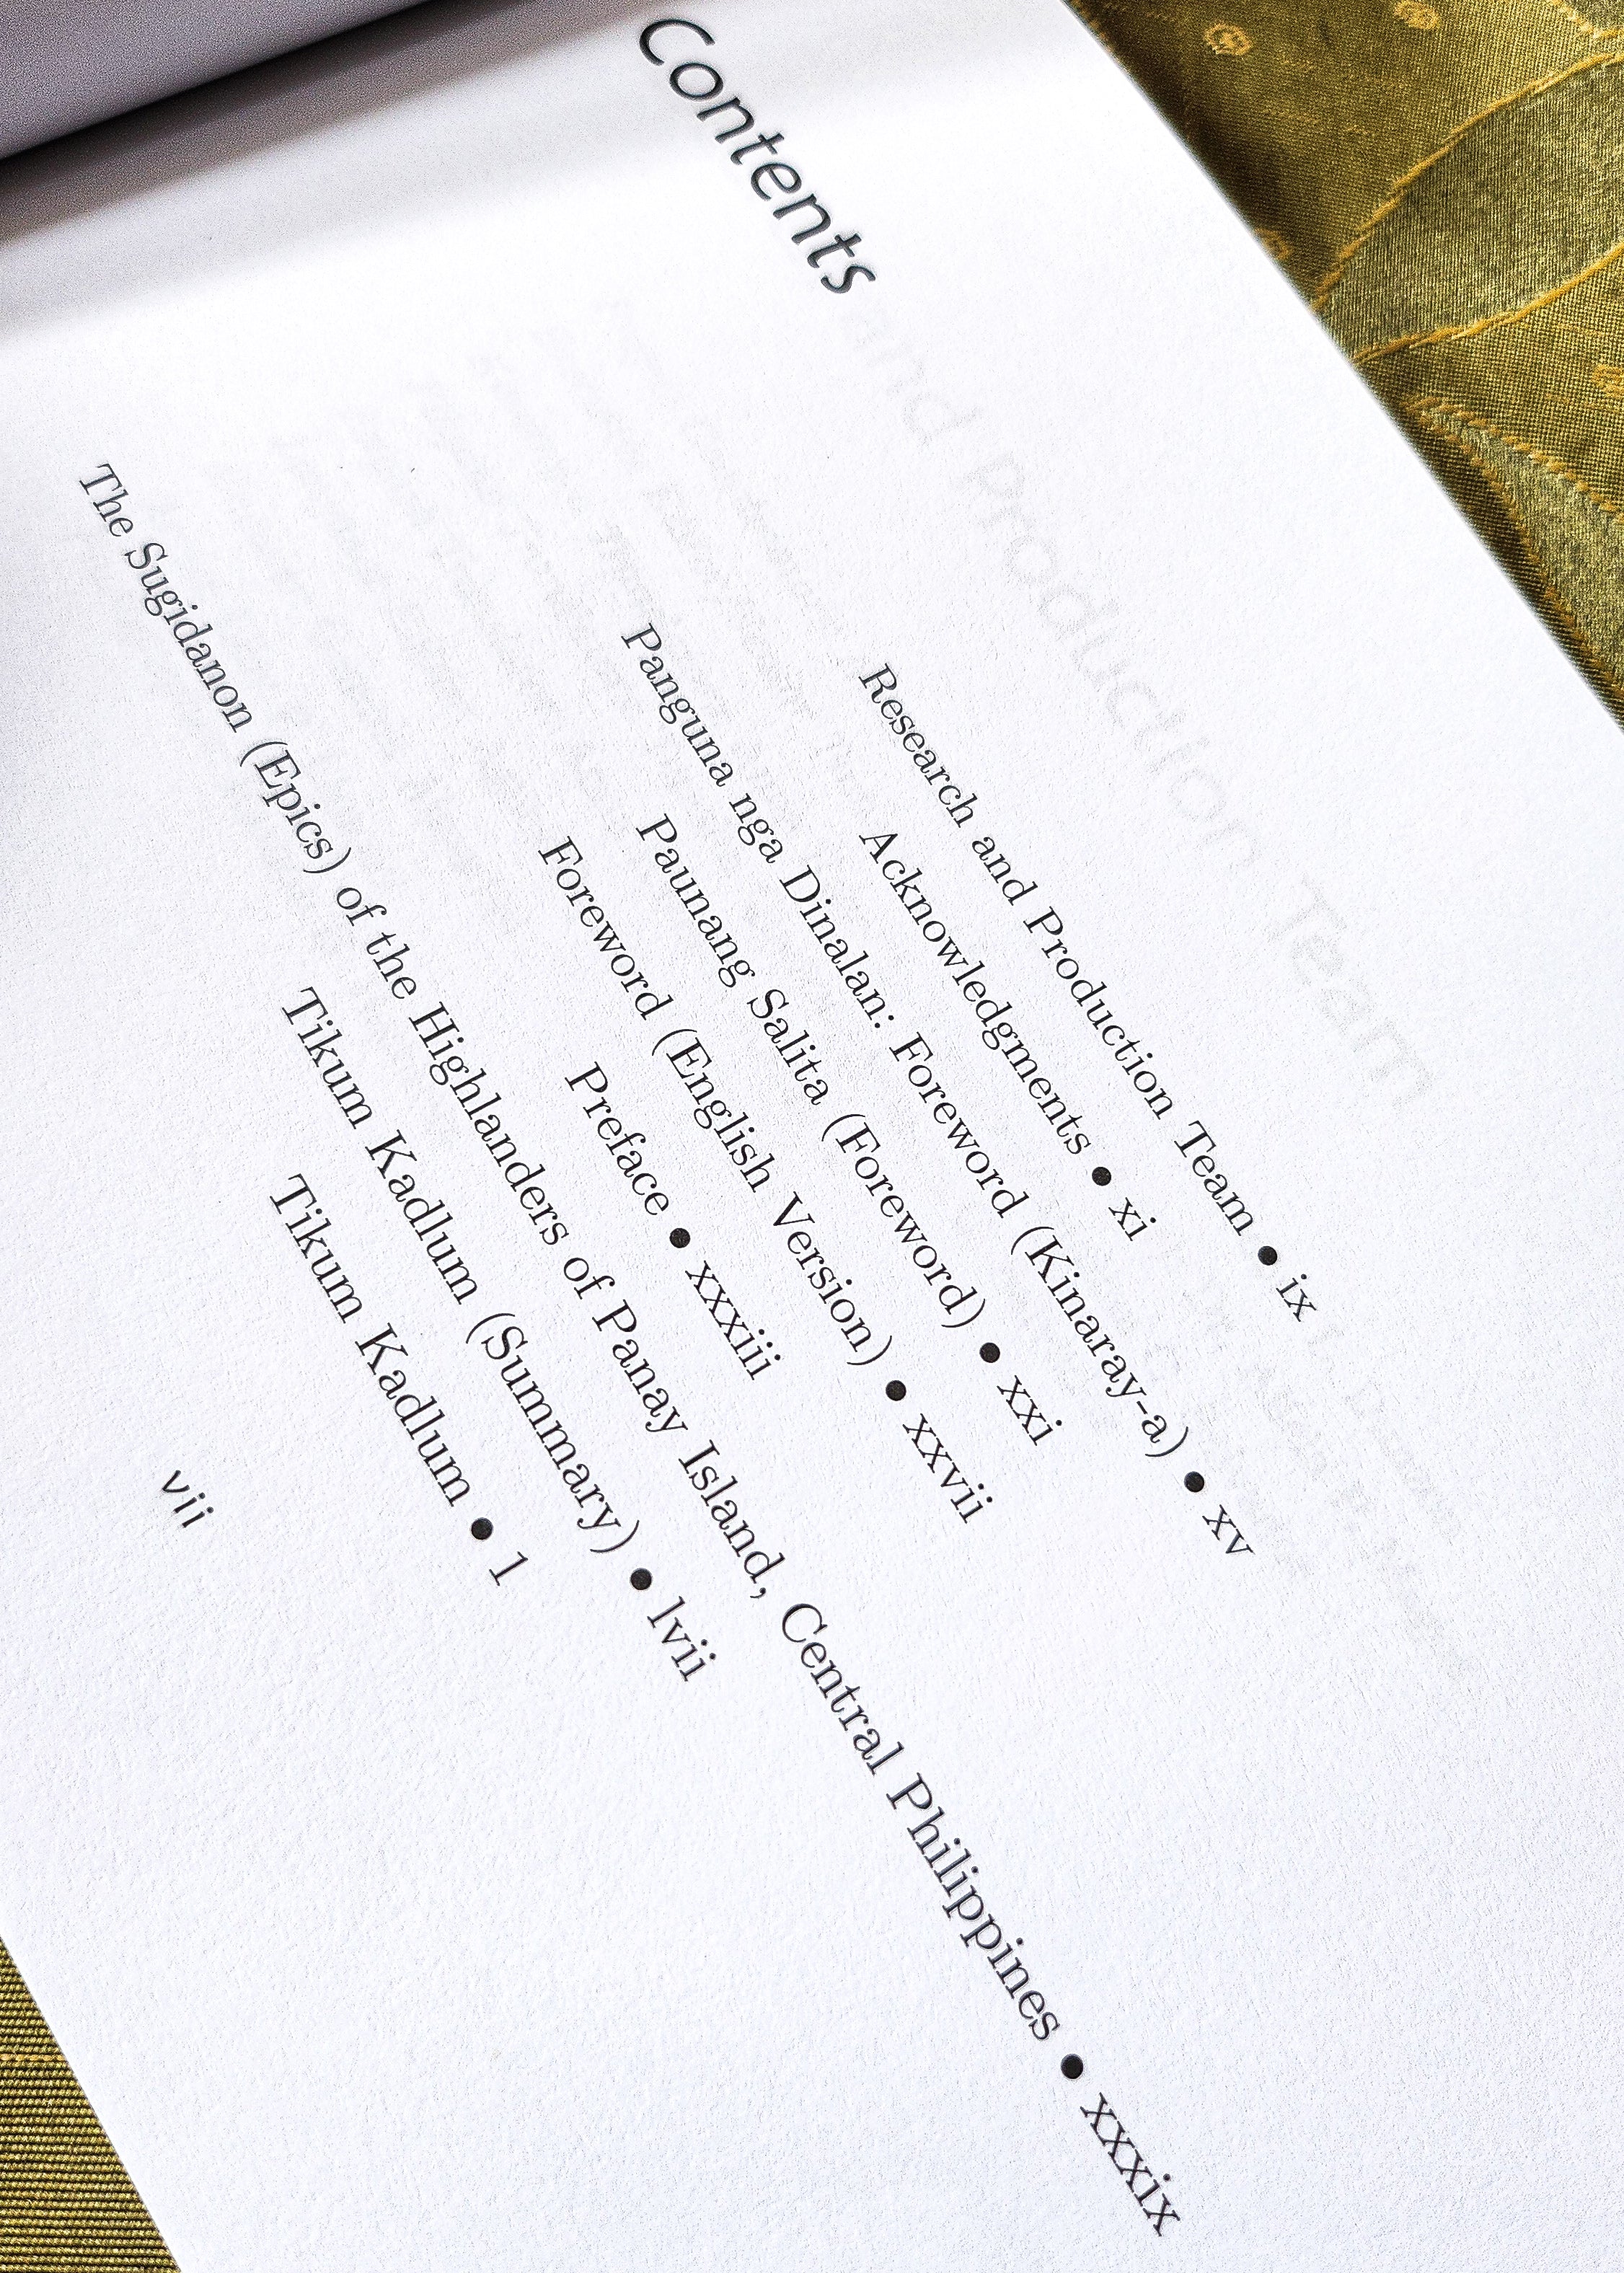 Contents
Research and Production Team • ix
Acknowledgments • xi
Panguna nga Dinalan: Foreword (Kinaray-a) • xv
Paunang Salita (Foreword) • xxi
Foreword (English Version) • xxvii
Preface • xxxiii
The Sugidanon (Epics) of the Highlanders of Panay Island, Central Philippines • xxxix
Tikum Kadlum (Summary) • lvii
Tikum Kadlum • 1
vii